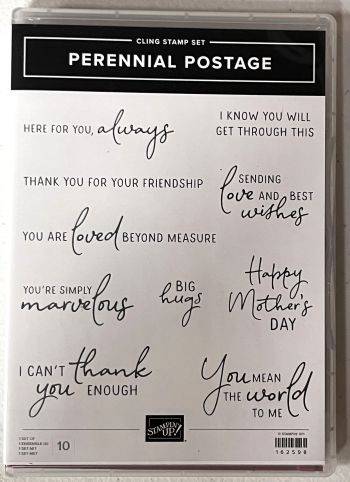 CLING STAMP SET
PERENNIAL POSTAGE
HERE FOR YOU, always
I KNOW YOU WILL
GET THROUGH THIS
THANK YOU FOR YOUR FRIENDSHIP
SENDING
love AND BEST
wishes
YOU ARE loved BEYOND MEASURE
YOU'RE SIMPLY
marvelous
BIG
hugs
Happy
Mother's
DAY
I CAN'T thank
you ENOUGH
You MEAN
THE world
TO ME
1 SET OF
10
STAMPIN' UP!
© STAMPIN' UP!
162598